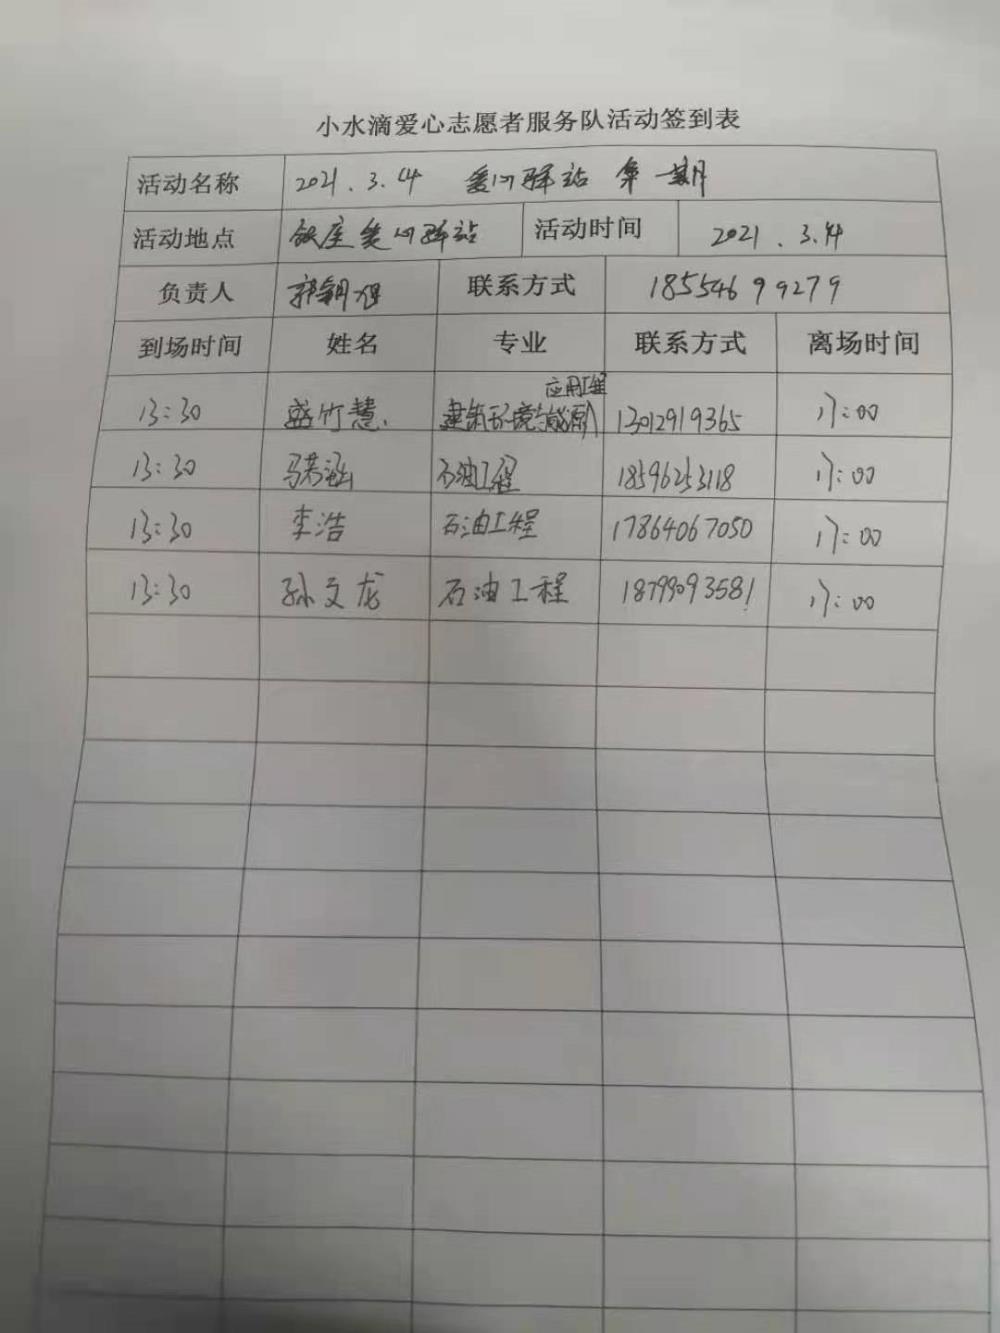 小水滴爱心志愿者服务队活动签到表
活动名称 2021.3.14 爱心驿站 第一期
活动地点 银座爱心驿站 活动时间 2021.3.14
负责人 郭 联系方式 18554699279
到场时间 姓名 专业 联系方式 离场时间
应用工程
13:30 盛竹慧 建筑环境与能源 13012919365 17:00
13:30 马若涵 石油工程 18596253118 17:00
13:30 李浩 石油工程 17864067050 17:00
13:30 孙文龙 石油工程 18799093581 17:00